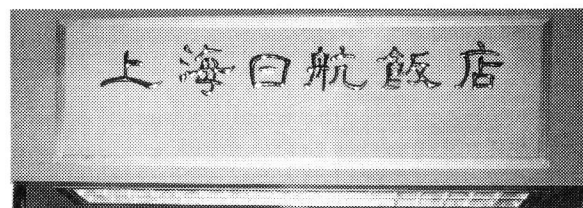 上海日航飯店